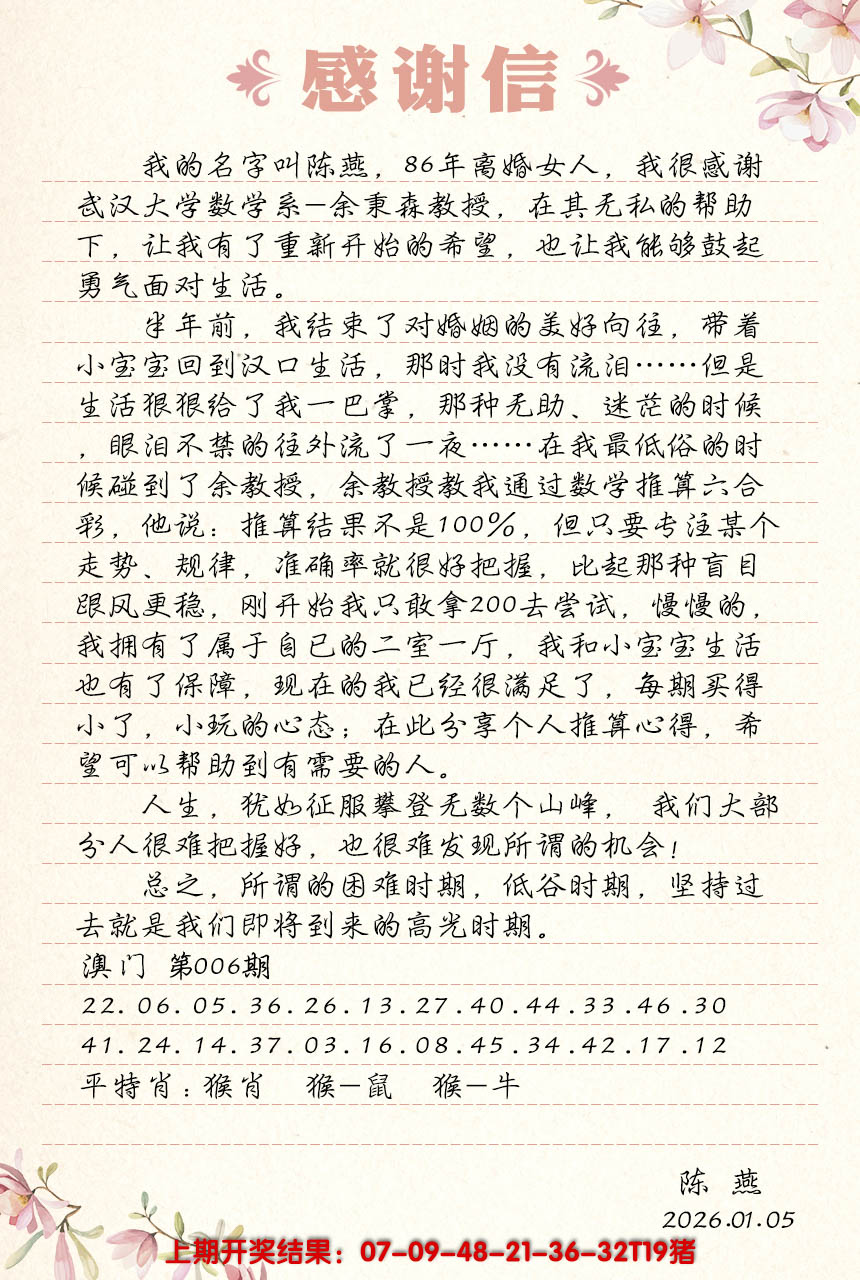 感谢信
我的名字叫陈燕，86年离婚女人，我很感谢
武汉大学数学系—余秉森教授，在其无私的帮助
下，让我有了重新开始的希望，也让我能够鼓起
勇气面对生活。
半年前，我结束了对婚姻的美好向往，带着
小宝宝回到汉口生活，那时我没有流泪……但是
生活狠狠给了我一巴掌，那种无助、迷茫的时候
，眼泪不禁的往外流了一夜……在我最低俗的时
候碰到了余教授，余教授教我通过数学推算六合
彩，他说：推算结果不是100%，但只要专注某个
走势、规律，准确率就很好把握，比起那种盲目
跟风更稳，刚开始我只敢拿200去尝试，慢慢的，
我拥有了属于自己的二室一厅，我和小宝宝生活
也有了保障，现在的我已经很满足了，每期买得
小了，小玩的心态；在此分享个人推算心得，希
望可以帮助到有需要的人。
人生，犹如征服攀登无数个山峰， 我们大部
分人很难把握好，也很难发现所谓的机会！
总之，所谓的困难时期，低谷时期，坚持过
去就是我们即将到来的高光时期。
澳门 第006期
22.06.05.36.26.13.27.40.44.33.46.30
41.24.14.37.03.16.08.45.34.42.17.12
平特肖：猴肖 猴—鼠 猴—牛
陈 燕
2026.01.05
上期开奖结果：07-09-48-21-36-32T19猪